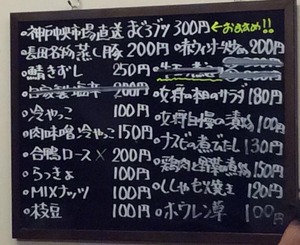 神戸中央市場直送 まぐろブツ 300円 ←おすすめ!!
長田名物 蒸し豚 200円
鯖きずし 250円
冷やっこ 100円
肉味噌冷やっこ 150円
合鴨ロース 200円
らっきょ 100円
MIXナッツ 100円
枝豆 100円
赤ウィンナー 200円
サラダ 180円
自慢の漬物 100円
ナスビの煮びたし 130円
鶏肉と野菜の煮物 150円
ししゃも火焼き 120円
ホウレン草 100円